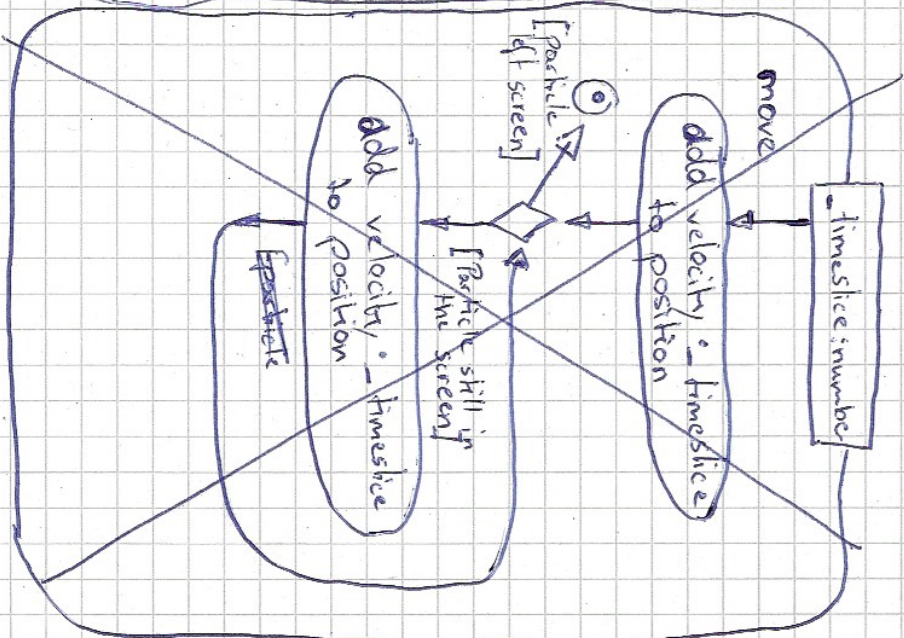 _timeslice:number
move
add velocity · _timeslice
to position
[particle
left screen]
[Particle still in
the screen]
add velocity · _timeslice
to position
[particle